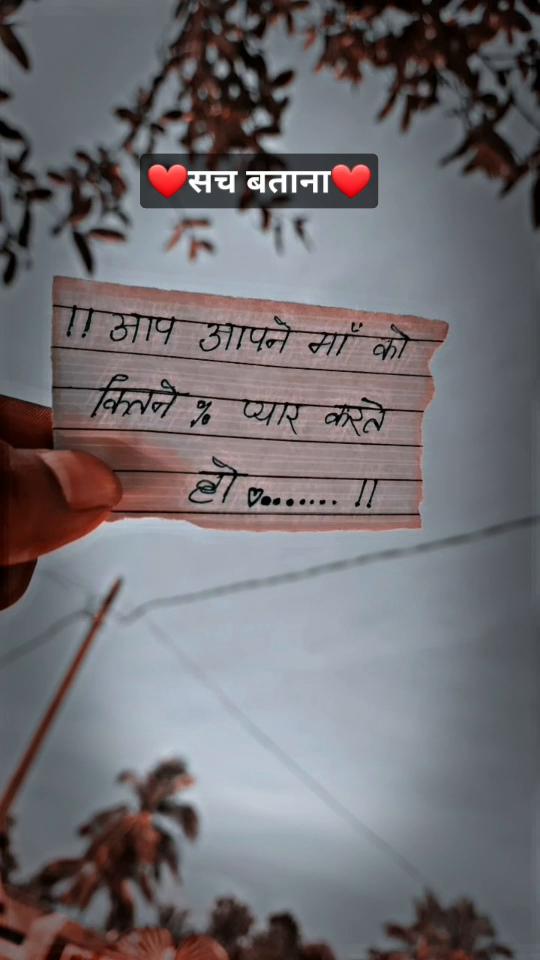 ❤️सच बताना❤️
!! आप आपने माँ को
कितने % प्यार करते
हो ♡........ !!